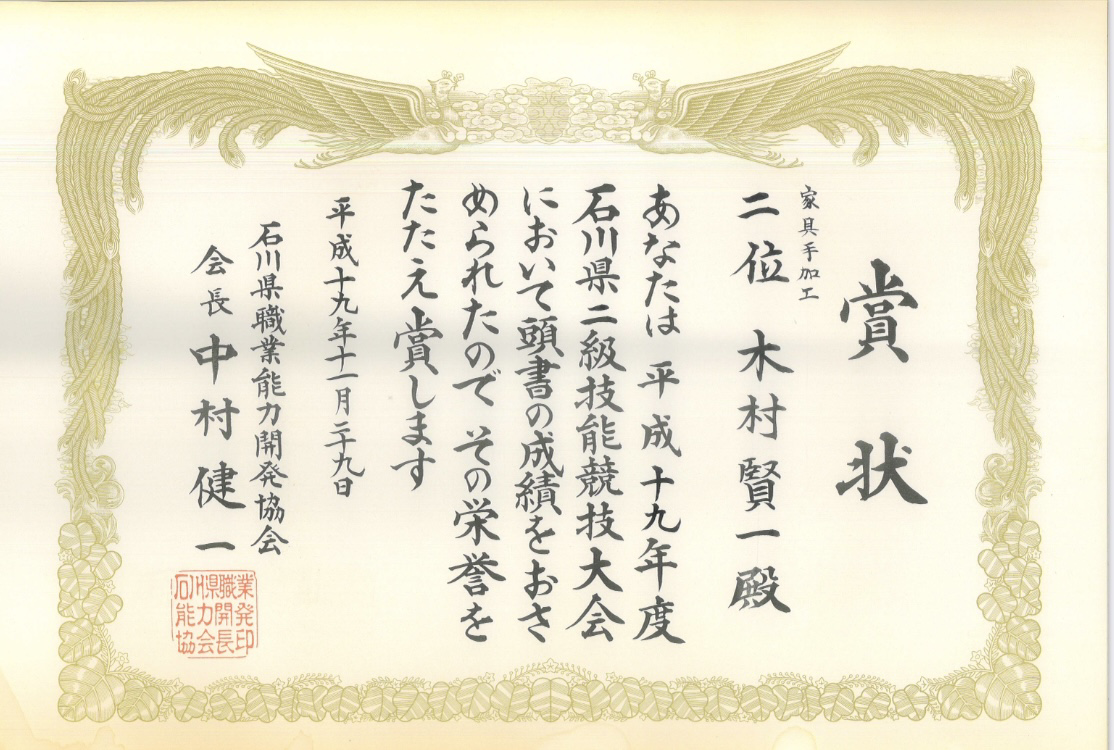 賞状
家具手加工
二位 木村賢一殿
あなたは 平成十九年度
石川県二級技能競技大会
において頭書の成績をおさ
められたので その栄誉を
たたえ賞します
平成十九年十一月二十九日
石川県職業能力開発協会
会長 中村健一
石川県職業
能力開発
協会長印